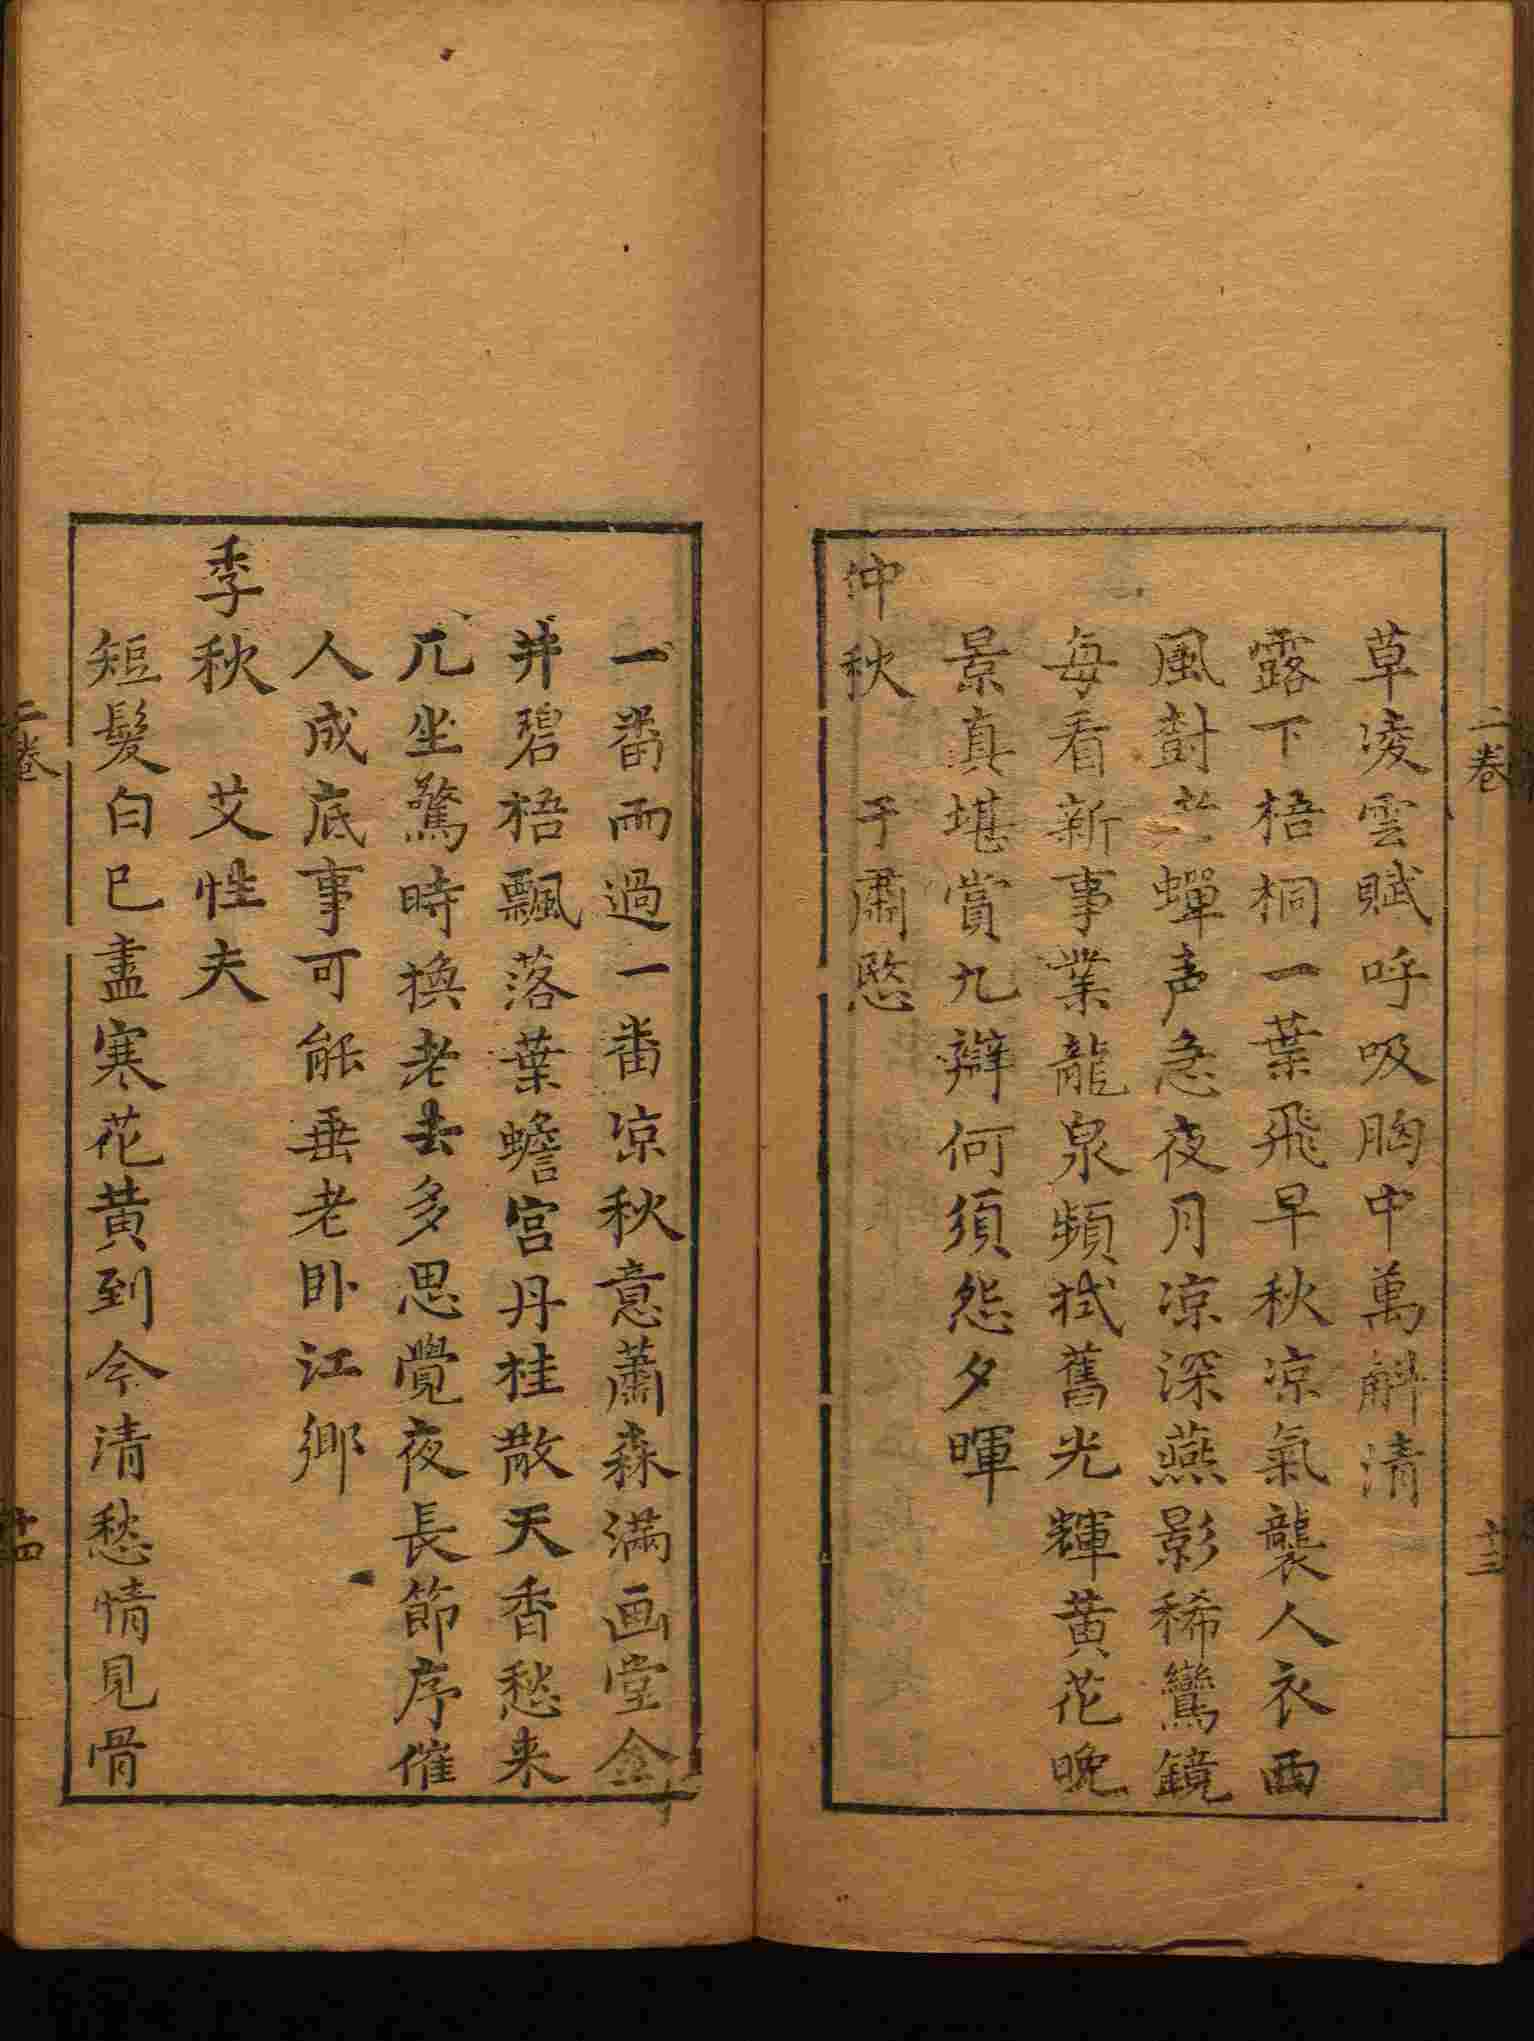 二卷
十三
草凌雲賦呼吸胸中萬斛清
露下梧桐一葉飛早秋凉氣襲人衣西
風樹 蟬声急夜月凉深燕影稀鸞鏡
每看新事業龍泉頻拭舊光輝黄花晚
景真堪賞九辯何須怨夕暉
仲秋 于肅愍
一番雨過一番凉秋意蕭森滿画堂金
井碧梧飄落葉蟾宫丹桂散天香愁来
兀坐驚時換老去多思覺夜長節序催
人成底事可能垂老卧江鄉
季秋 艾性夫
短髮白已盡寒花黄到今清愁情見骨
二卷
十四